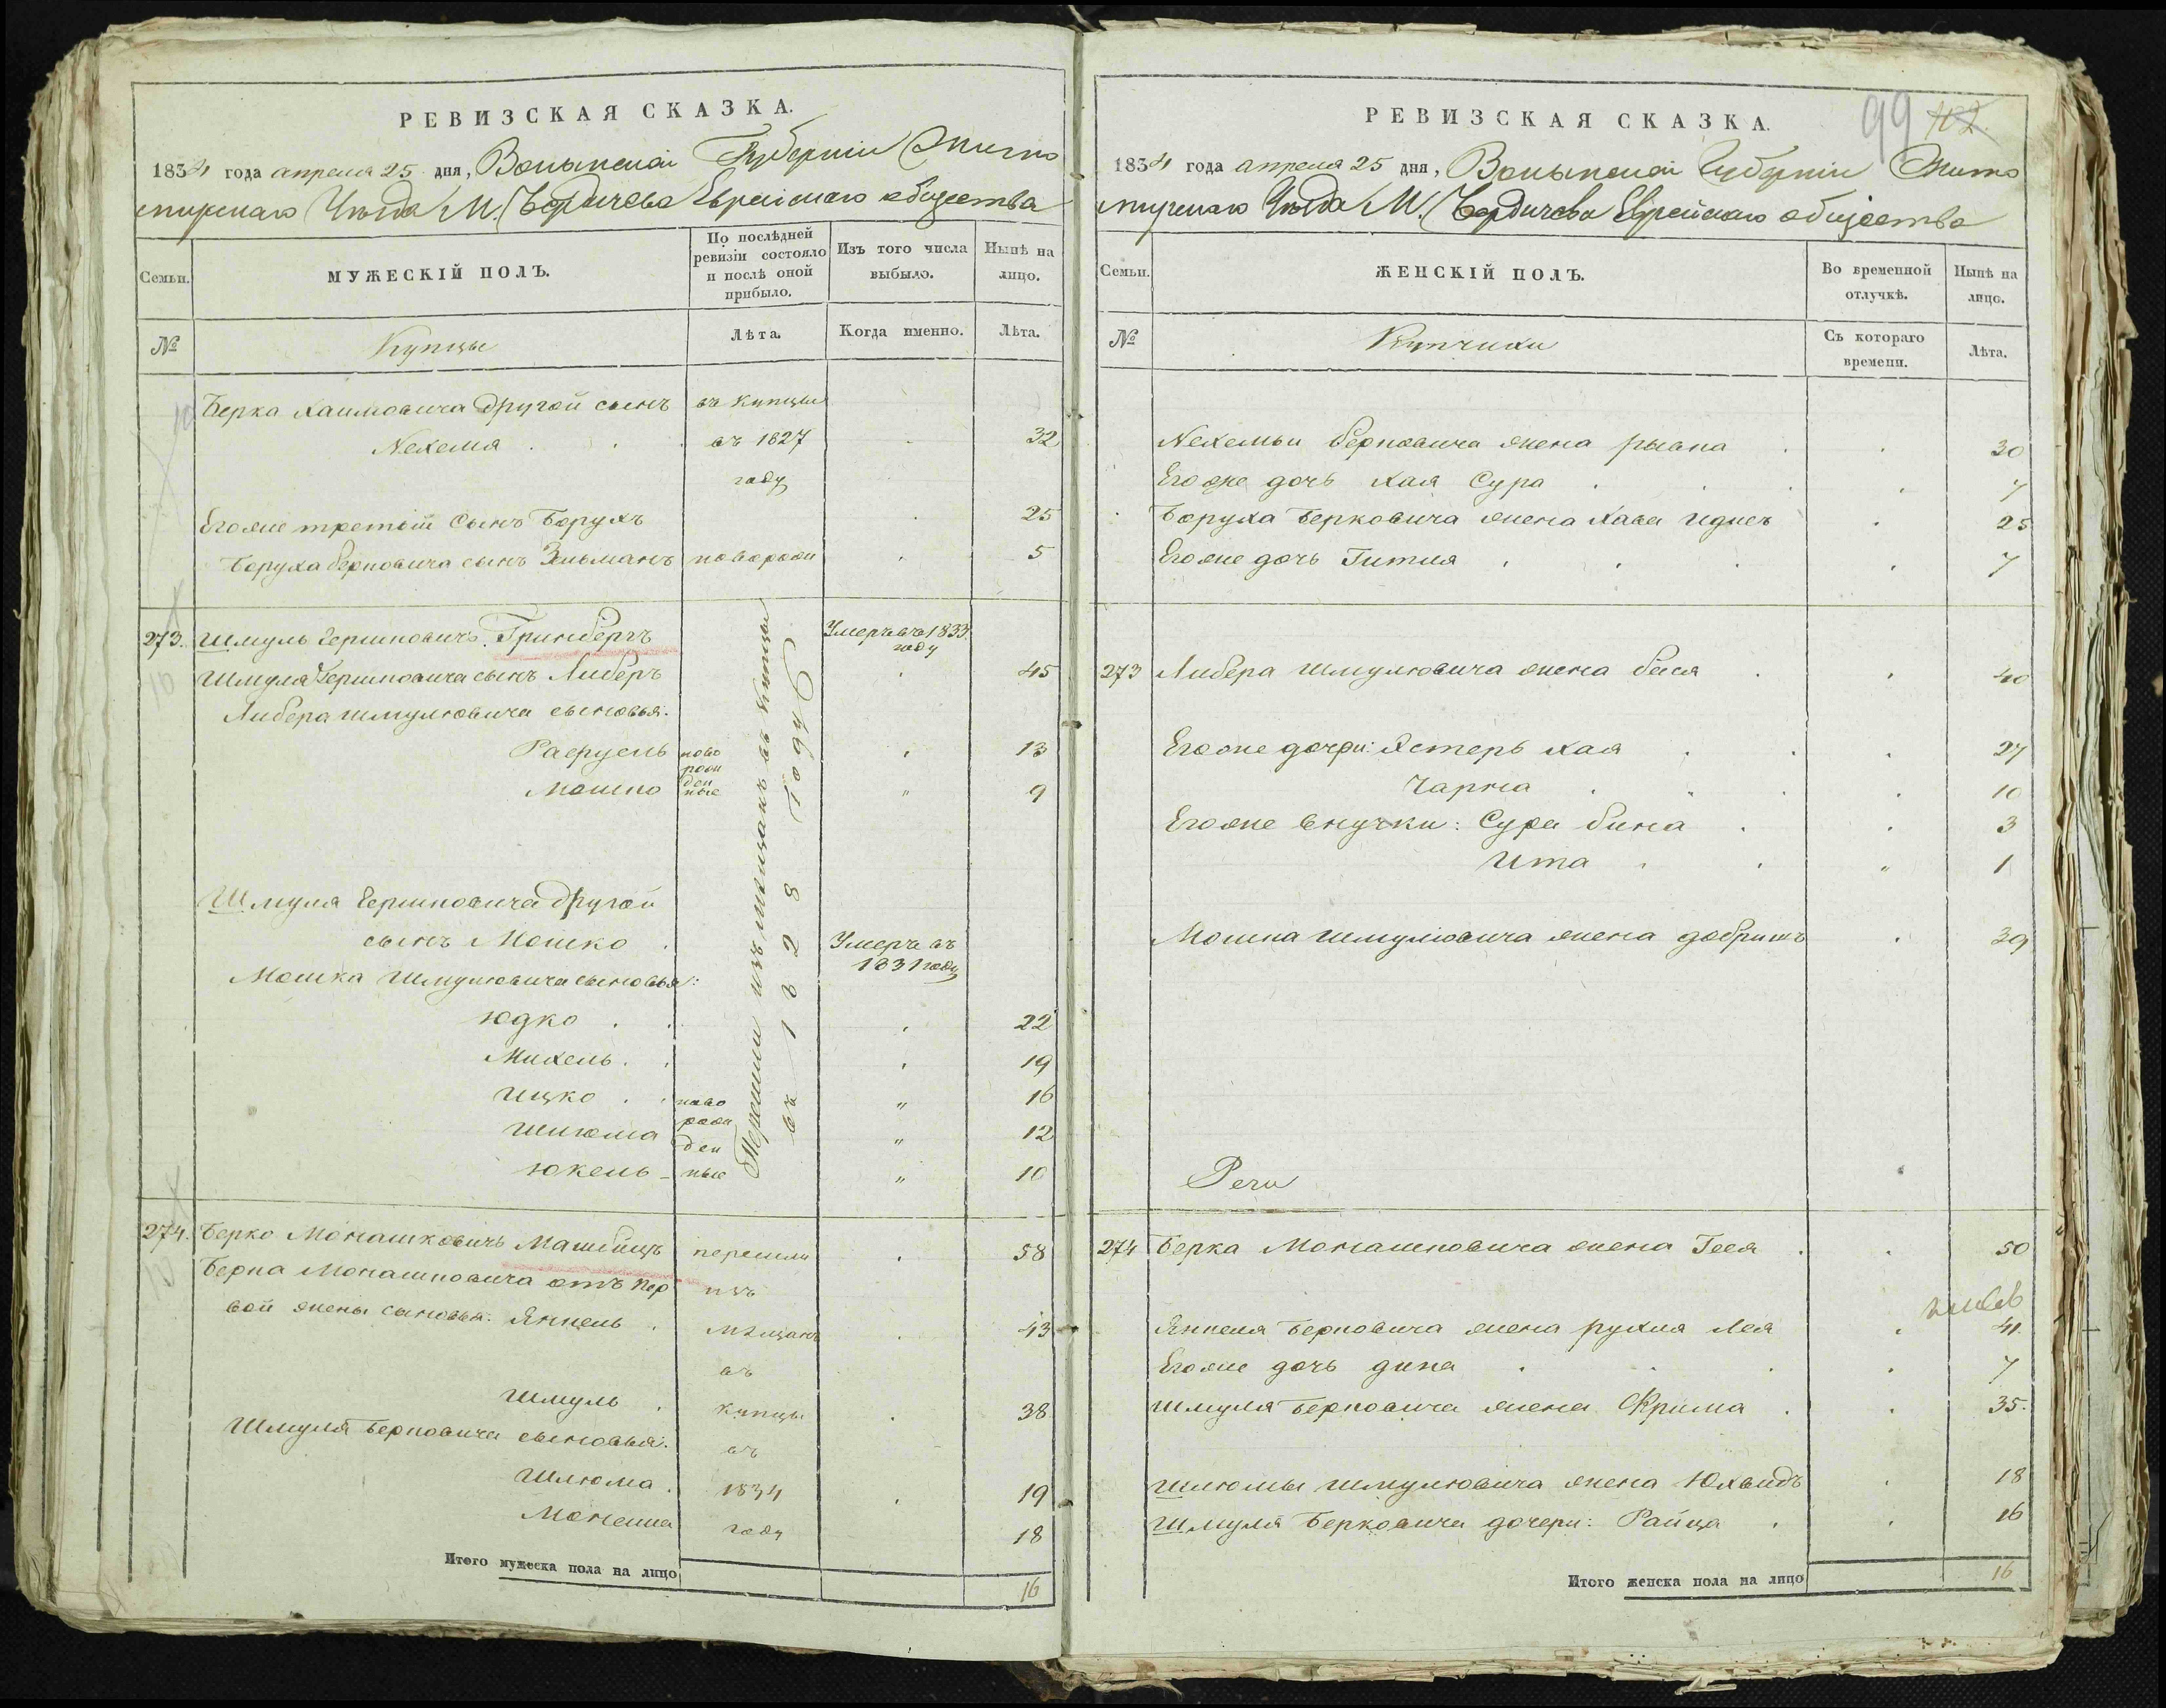 РЕВИЗСКАЯ СКАЗКА.
1834 года апреля 25 дня, Волынской Губернiи Жито
мирскаго Уѣзда М. Бердичева Еврейскаго общества
Семьи.
МУЖЕСКІЙ ПОЛЪ.
По послѣдней ревизіи состояло и послѣ оной прибыло.
Изъ того числа выбыло.
Нынѣ на лицо.
№
Купцы
Лѣта.
Когда именно.
Лѣта.
Берка Хаимовича другой сынъ въ купцы
Нехемя въ 1827 32
году
Егоже третiй сынъ Борухъ 25
Боруха Берковича сынъ Зельманъ новорож 5
273. Шмуль Гершковичъ Гринбергъ Умеръ въ 1833 году
Шмуля Гершковича сынъ Либеръ 45
Либера Шмулювича сыновья:
Рафуель ново 13
рож
Мошко ден 9
ные
Шмуля Гершковича другой
сынъ Мошко Умеръ въ
1831 году
Мошка Шмулювича сыновья:
Юдко 22
Михель 19
Ицко ново 16
Шлюма рож 12
ден
Юкель ные 10
Перешли изъ мѣщанъ въ купцы
въ 1828 году
274. Берко Монашковичъ Машбицъ перешли 58
Берка Монашковича отъ пер изъ
вой жены сыновья: Янкель мѣщанъ 43
въ
Шмуль купцы 38
Шмуля Берковича сыновья: въ
Шлюма 1834 19
Монаша году 18
Итого мужеска пола на лицо 16
РЕВИЗСКАЯ СКАЗКА.
99 102
1834 года апреля 25 дня, Волынской Губернiи Жито
мирскаго Уѣзда М. Бердичева Еврейскаго общества
Семьи.
ЖЕНСКІЙ ПОЛЪ.
Во временной отлучкѣ.
Нынѣ на лицо.
№
Купчихи
Съ котораго времени.
Лѣта.
Нехемьи Берковича жена Рывка 30
Егоже дочь Хая Сура 7
Боруха Берковича жена Хава Идесъ 25
Егоже дочь Гитля 7
273 Либера Шмулювича жена Бася 40
Егоже дочри: Эстеръ Хая 27
Чарна 10
Егоже внучки: Сура Бина 3
Ита 1
Мошка Шмулювича жена Добришъ 39
274 Берка Монашковича жена Геея 50
Янкеля Берковича жена Рухля Лея 41.
Егоже дочь Дина 7
Шмуля Берковича жена Фрима 35.
Шлюмы Шмулювича жена Юхвидъ 18
Шмуля Берковича дочери: Райца 16
Итого женска пола на лицо 16